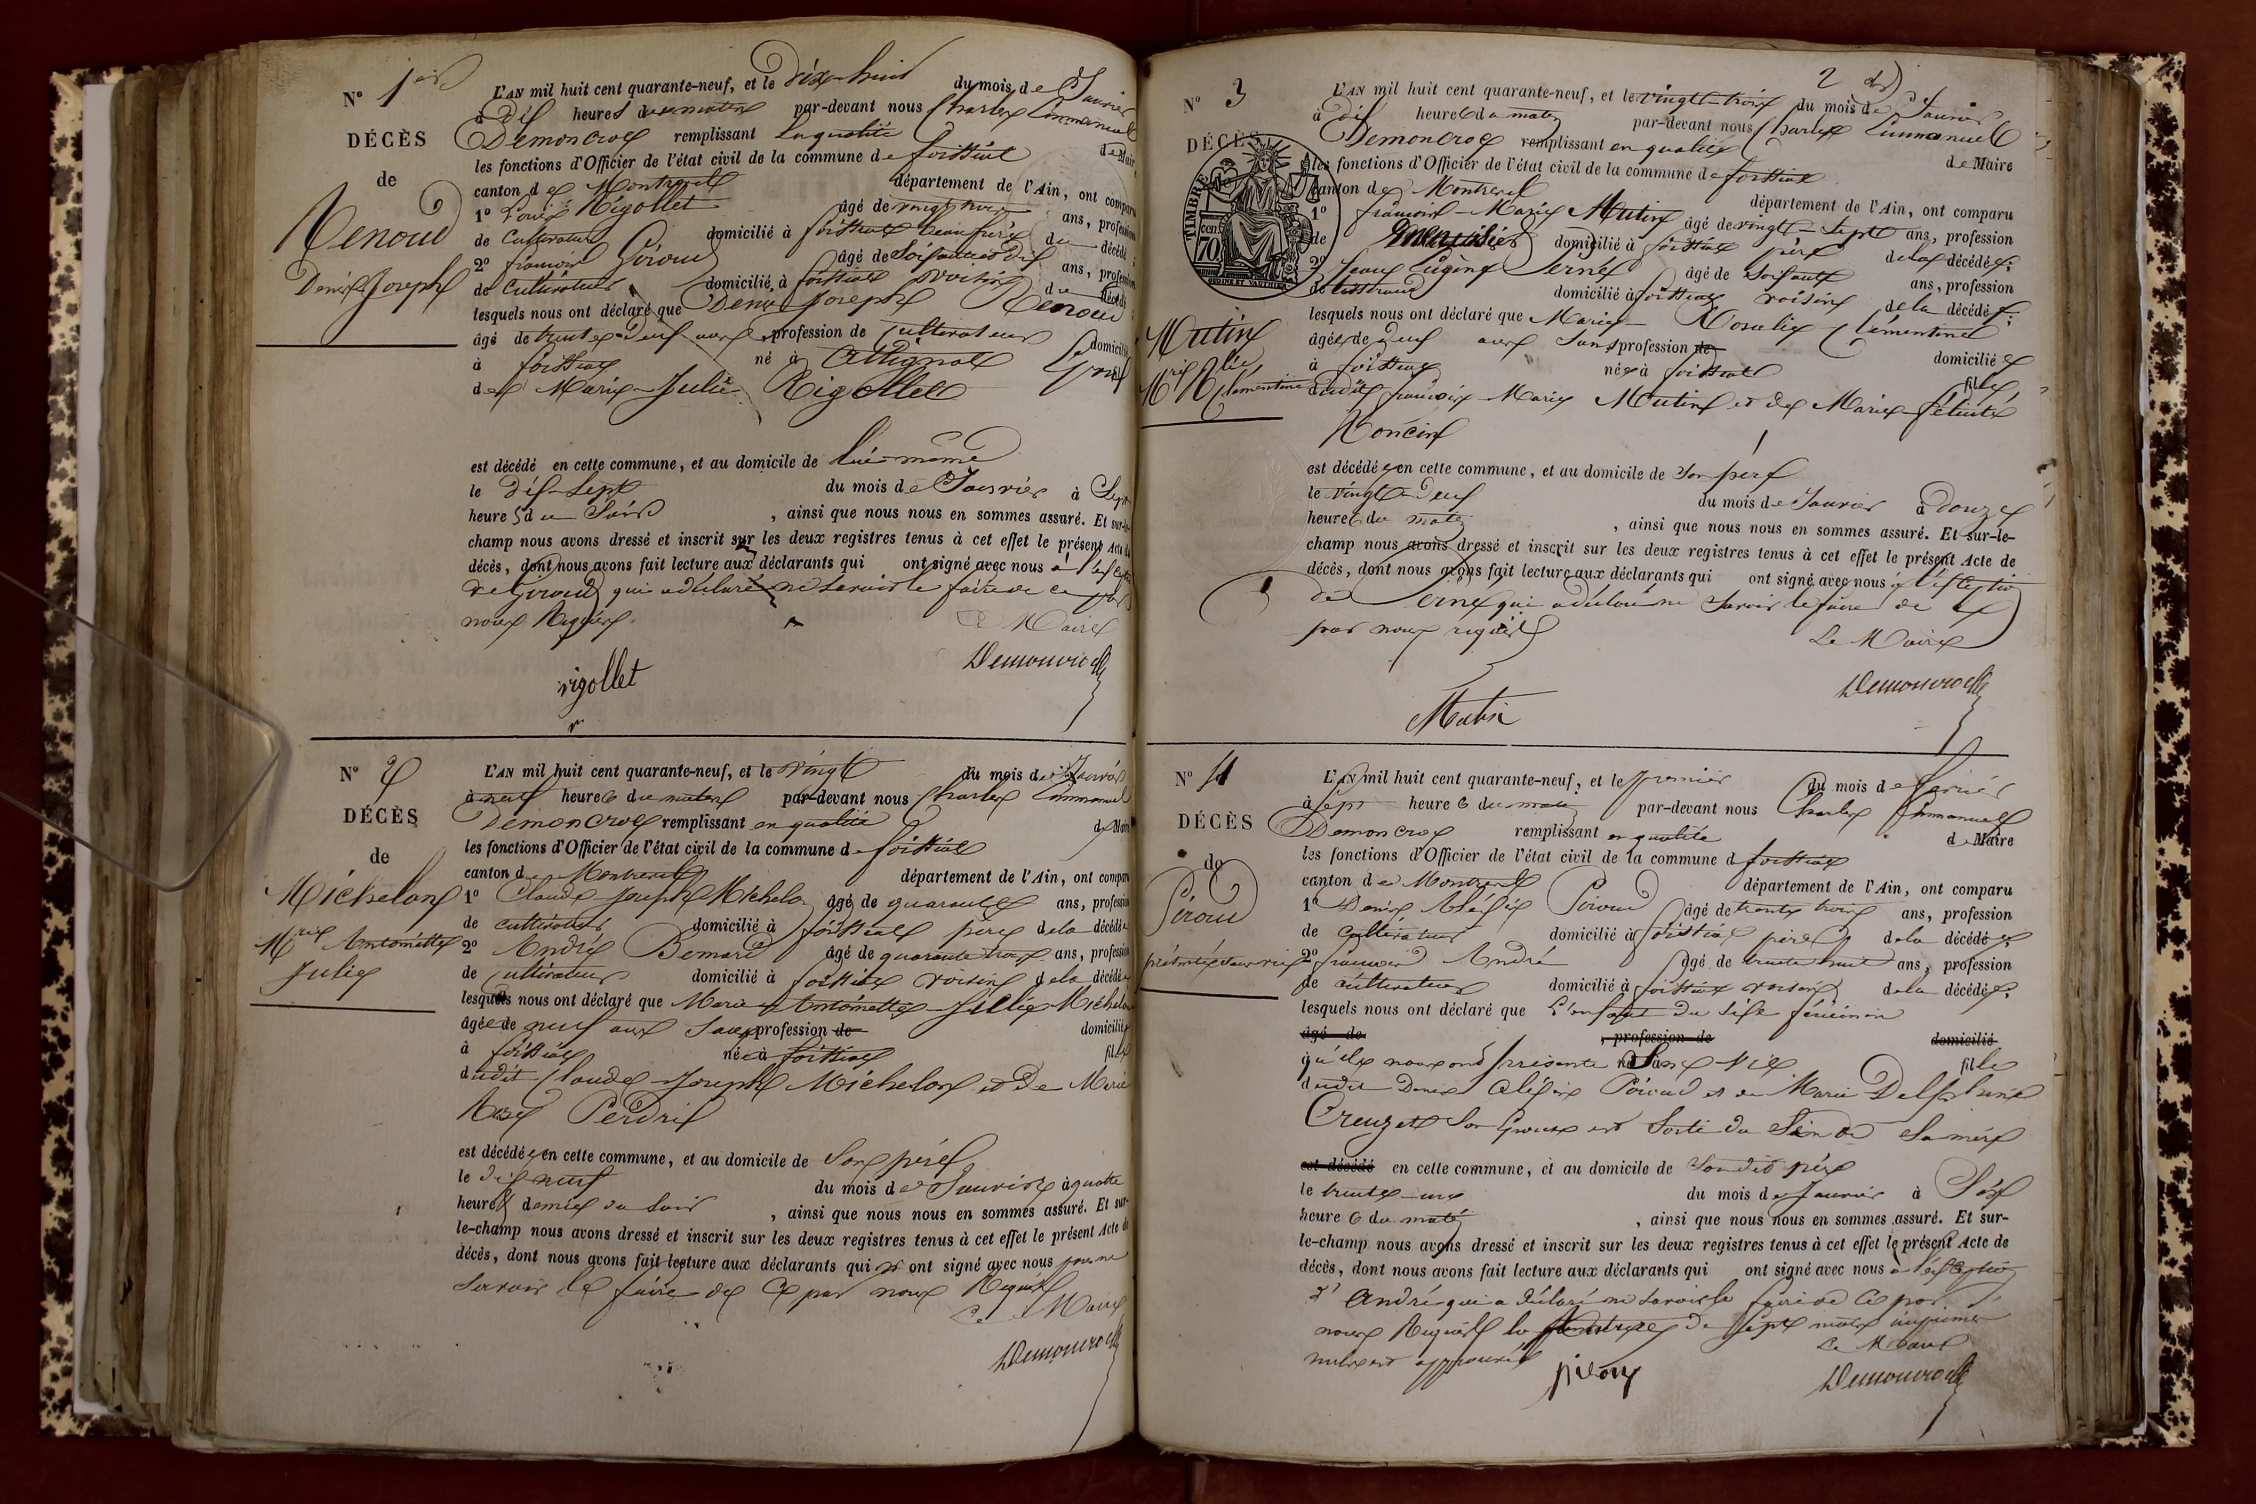 N° 1er
DÉCÈS
de
Renoud
Denis Joseph
L'AN mil huit cent quarante-neuf, et le dix-huit du mois de Janvier
à dix heures du matin par-devant nous Charles Emmanuel
Demoncroc remplissant en qualité de Maire
les fonctions d'Officier de l'état civil de la commune de foissiat
canton de Montrevel département de l'Ain, ont comparu
1° Louis Rigollet âgé de vingt ans, profession
de cultivateur domicilié à foissiat beau frère du décédé;
2° françois Piroud âgé de soixante dix ans, profession
de cultivateur domicilié à foissiat voisin du décédé
lesquels nous ont déclaré que Denis Joseph Renoud
âgé de trente deux ans profession de cultivateur domicilié
à foissiat né à Attignat Époux
de Marie Julie Rigollet
est décédé en cette commune, et au domicile de lui-même
le dix-sept du mois de Janvier à Sept
heures du soir, ainsi que nous nous en sommes assuré. Et sur-le-
champ nous avons dressé et inscrit sur les deux registres tenus à cet effet le présent Acte de
décès, dont nous avons fait lecture aux déclarants qui ont signé avec nous à l'exception
de Piroud qui a déclaré ne savoir le faire de ce par
nous Requis
Le Maire
rigollet
Demoncroc
N° 2
DÉCÈS
de
Michelon
Mie Antoinette
Julie
L'AN mil huit cent quarante-neuf, et le vingt du mois de Janvier
à neuf heures du matin par-devant nous Charles Emmanuel
Demoncroc remplissant en qualité de Maire
les fonctions d'Officier de l'état civil de la commune de foissiat
canton de Montrevel département de l'Ain, ont comparu
1° Claude Joseph Michelon âgé de quarante ans, profession
de cultivateur domicilié à foissiat père de la décédée
2° André Bernard âgé de quarante trois ans, profession
de cultivateur domicilié à foissiat voisin de la décédée
lesquels nous ont déclaré que Marie Antoinette Julie Michelon
âgée de neuf ans Sans profession de domiciliée
à foissiat née à foissiat fille
dudit Claude Joseph Michelon et de Marie
Rose Perdrix
est décédée en cette commune, et au domicile de Son père
le dix neuf du mois de Janvier à quatre
heures demie du soir, ainsi que nous nous en sommes assuré. Et sur-
le-champ nous avons dressé et inscrit sur les deux registres tenus à cet effet le présent Acte de
décès, dont nous avons fait lecture aux déclarants qui n'ont signé avec nous pour ne
savoir le faire de ce par nous Requis
Le Maire
Demoncroc
2
N° 3
DÉCÈS
TIMBRE
70 cent
Mutin
Mie Rlie
Clémentine
L'AN mil huit cent quarante-neuf, et le vingt-trois du mois de Janvier
à dix heures du matin par-devant nous Charles Emmanuel
Demoncroc remplissant en qualité de Maire
les fonctions d'Officier de l'état civil de la commune de foissiat
canton de Montrevel département de l'Ain, ont comparu
1° françois-Marie Mutin âgé de vingt-sept ans, profession
de menuisier domicilié à foissiat père de la décédée;
2° Jean Eugène Perné âgé de soixante ans, profession
de tisserand domicilié à foissiat voisin de la décédée;
lesquels nous ont déclaré que Marie-Rosalie Clémentine
âgée de deux ans Sans profession de domiciliée
à foissiat née à foissiat fille
dudit françois-Marie Mutin et de Marie-félicité
Roncin
est décédée en cette commune, et au domicile de son père
le vingt-deux du mois de Janvier à douze
heures du matin, ainsi que nous nous en sommes assuré. Et sur-le-
champ nous avons dressé et inscrit sur les deux registres tenus à cet effet le présent Acte de
décès, dont nous avons fait lecture aux déclarants qui ont signé avec nous à l'exception
de Perné qui a déclaré ne savoir le faire de ce
par nous requis
Le Maire
Mutin
Demoncroc
N° 4
DÉCÈS
de
Piroud
présentée sans vie
L'AN mil huit cent quarante-neuf, et le premier du mois de février
à Sept heures du matin par-devant nous Charles Emmanuel
Demoncroc remplissant en qualité de Maire
les fonctions d'Officier de l'état civil de la commune de foissiat
canton de Montrevel département de l'Ain, ont comparu
1° Denis Alexis Piroud âgé de trente trois ans, profession
de cultivateur domicilié à foissiat père de la décédée;
2° françois André âgé de trente huit ans, profession
de cultivateur domicilié à foissiat voisin de la décédée;
lesquels nous ont déclaré que L'enfant du sexe féminin
âgé de, profession de domicilié
qu'ils nous ont présenté né Sans vie fille
dudit Denis Alexis Piroud et de Marie Delphine
Creuzet son épouse est sorti du sein de sa mère
est décédé en cette commune, et au domicile de son dit père
le trente-un du mois de Janvier à Six
heures du matin, ainsi que nous nous en sommes assuré. Et sur-
le-champ nous avons dressé et inscrit sur les deux registres tenus à cet effet le présent Acte de
décès, dont nous avons fait lecture aux déclarants qui ont signé avec nous à l'exception
d'André qui a déclaré ne savoir le faire de ce par
nous Requis la de Sept mots imprimés
nuls est approuvé
Le Maire
piroux
Demoncroc